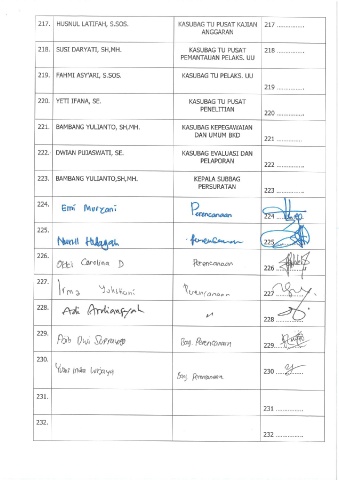 217. HUSNUL LATIFAH, S.SOS. KASUBAG TU PUSAT KAJIAN ANGGARAN 217 ..............
218. SUSI DARYATI, SH,MH. KASUBAG TU PUSAT PEMANTAUAN PELAKS. UU 218 ..............
219. FAHMI ASY'ARI, S.SOS. KASUBAG TU PELAKS. UU 219 ..............
220. YETI IFANA, SE. KASUBAG TU PUSAT PENELITIAN 220 ..............
221. BAMBANG YULIANTO, SH,MH. KASUBAG KEPEGAWAIAN DAN UMUM BKD 221 ..............
222. DWIAN PUJASWATI, SE. KASUBAG EVALUASI DAN PELAPORAN 222 ..............
223. BAMBANG YULIANTO,SH,MH. KEPALA SUBBAG PERSURATAN 223 ..............
224. Emi Murzani Perencanaan 224
225. Nurull Hidayah Perencanaan 225
226. Carolina D Perencanaan 226
227. Irma Perencanaan 227
228. Adi Ardiansyah " 228
229. Dwi Bag. Perencanaan 229
230. Bag. Perencanaan 230
231. 231 ..............
232. 232 ..............